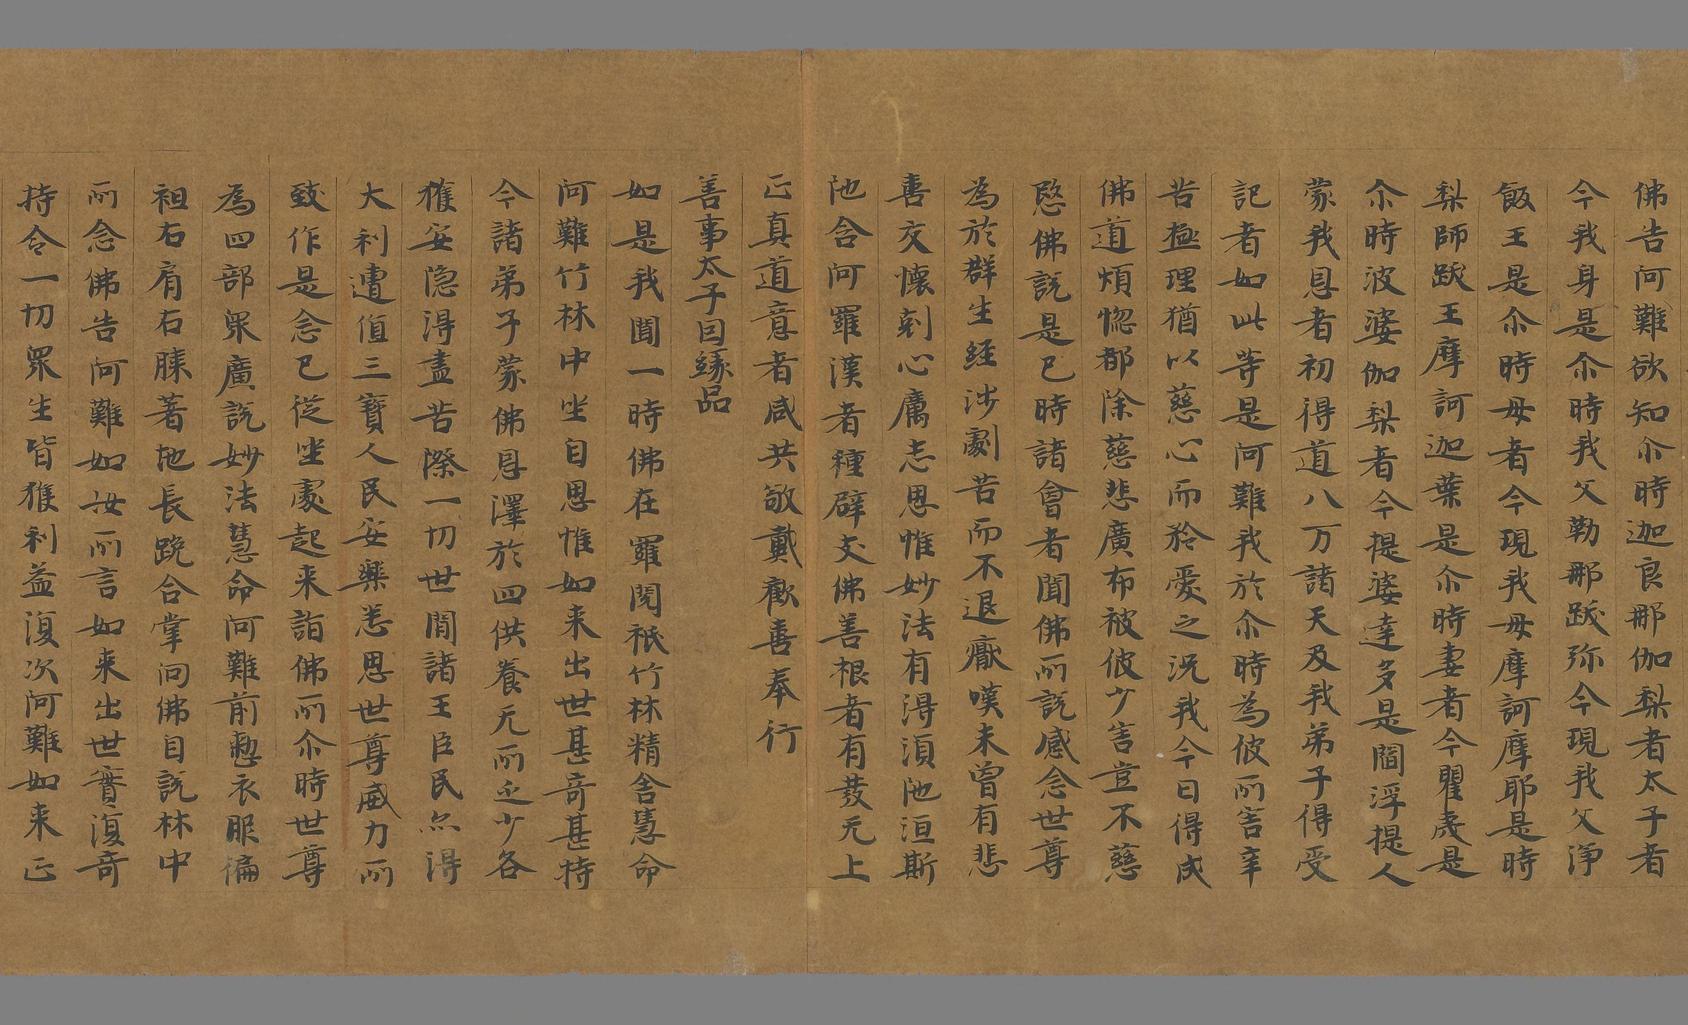 佛告阿難欲知尒時迦良那伽梨者太子者
今我身是尒時我父勒那跋弥今現我父浄
飯王是尒時母者今現我母摩訶摩耶是時
梨師跋王摩訶迦葉是尒時妻者今瞿夷是
尒時波婆伽梨者今提婆達多是閻浮提人
蒙我恩者初得道八万諸天及我弟子得受
記者如此等是阿難我於尒時為彼所害辛
苦極理猶以慈心而矜愛之況我今日得成
佛道煩惚都除慈悲廣布被彼少害豈不慈
愍佛說是已時諸會者聞佛所說感念世尊
為於群生経涉劇苦而不退癈嘆未曾有悲
喜交懷剋心厲志思惟妙法有淂湏陁洹斯
陁含阿羅漢者種辟支佛善根者有發无上
正真道意者咸共敬戴歡喜奉行
善事太子因緣品
如是我聞一時佛在羅閱祇竹林精舍慧命
阿難竹林中坐自思惟如来出世甚奇甚特
今諸弟子蒙佛恩澤於四供養无所乏少各
獲安隐淂盡苦際一切世閒諸王臣民亦淂
大利遭值三寶人民安樂悉思世尊威力所
致作是念已從坐處起来詣佛所尒時世尊
為四部眾廣說妙法慧命阿難前懃衣服徧
袒右肩右膝著地長跪合掌问佛自說林中
所念佛告阿難如汝所言如来出世實復奇
特令一切眾生皆獲利益復次阿難如来正